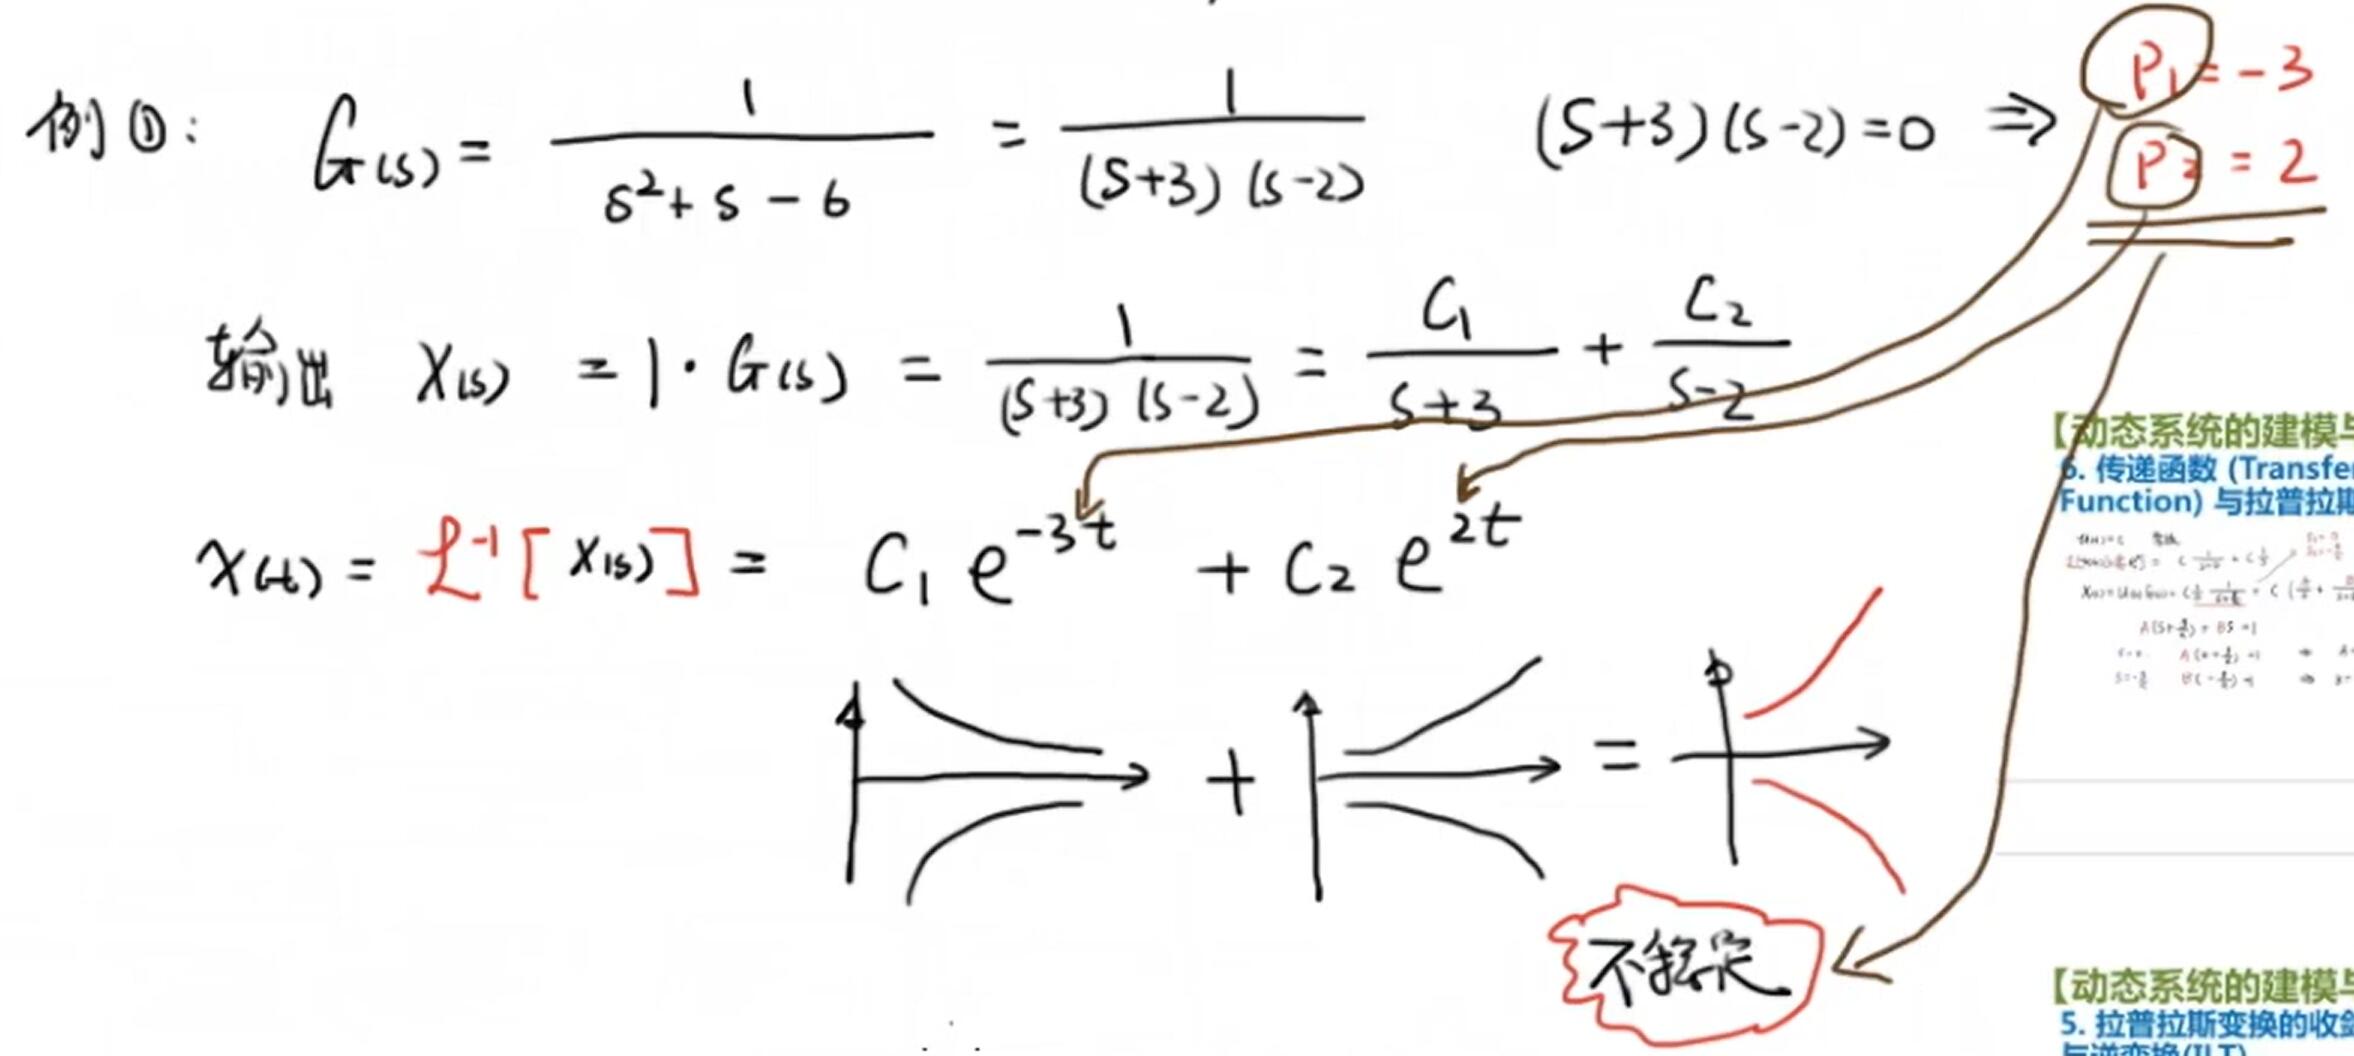 例①: G(s) = 1 / (s²+s-6) = 1 / ((s+3)(s-2)) (s+3)(s-2)=0 ⇒ P₁=-3
P₂=2
输出 X(s) = 1·G(s) = 1 / ((s+3)(s-2)) = C₁ / (s+3) + C₂ / (s-2)
x(t) = ℒ⁻¹[X(s)] = C₁e^(-3t) + C₂e^(2t)
+ =
不稳定
【动态系统的建模与
6. 传递函数 (Transfe
Function) 与拉普拉斯
【动态系统的建模与
5. 拉普拉斯变换的收敛
与逆变换(ILT)